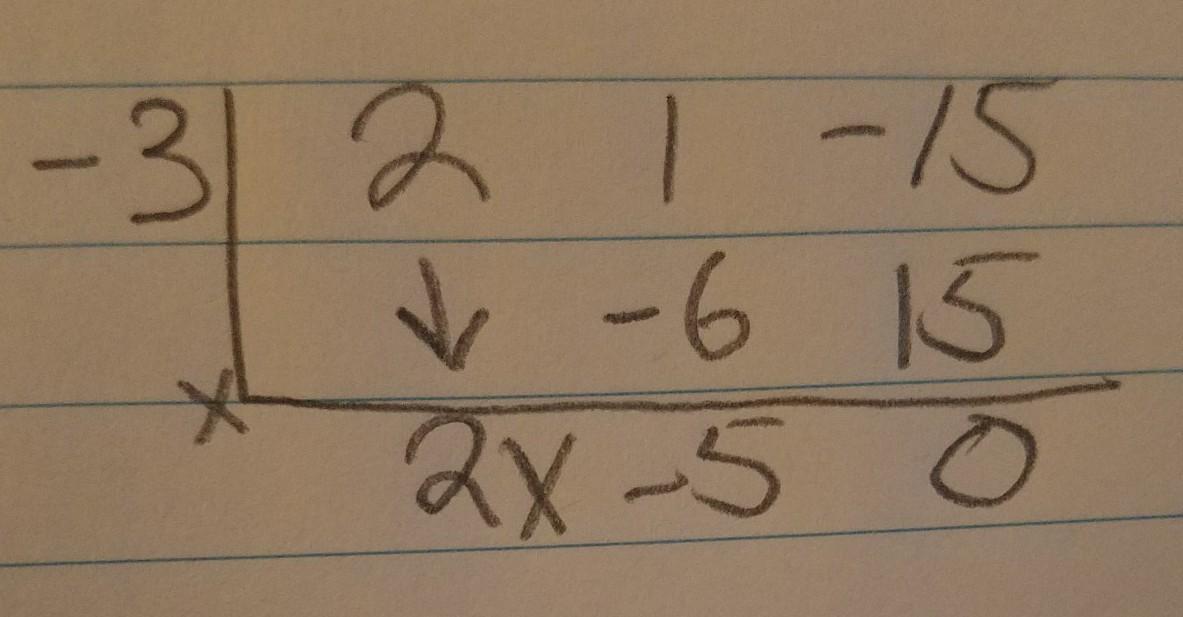 -3 2 1 -15
↓ -6 15
x 2x -5 0